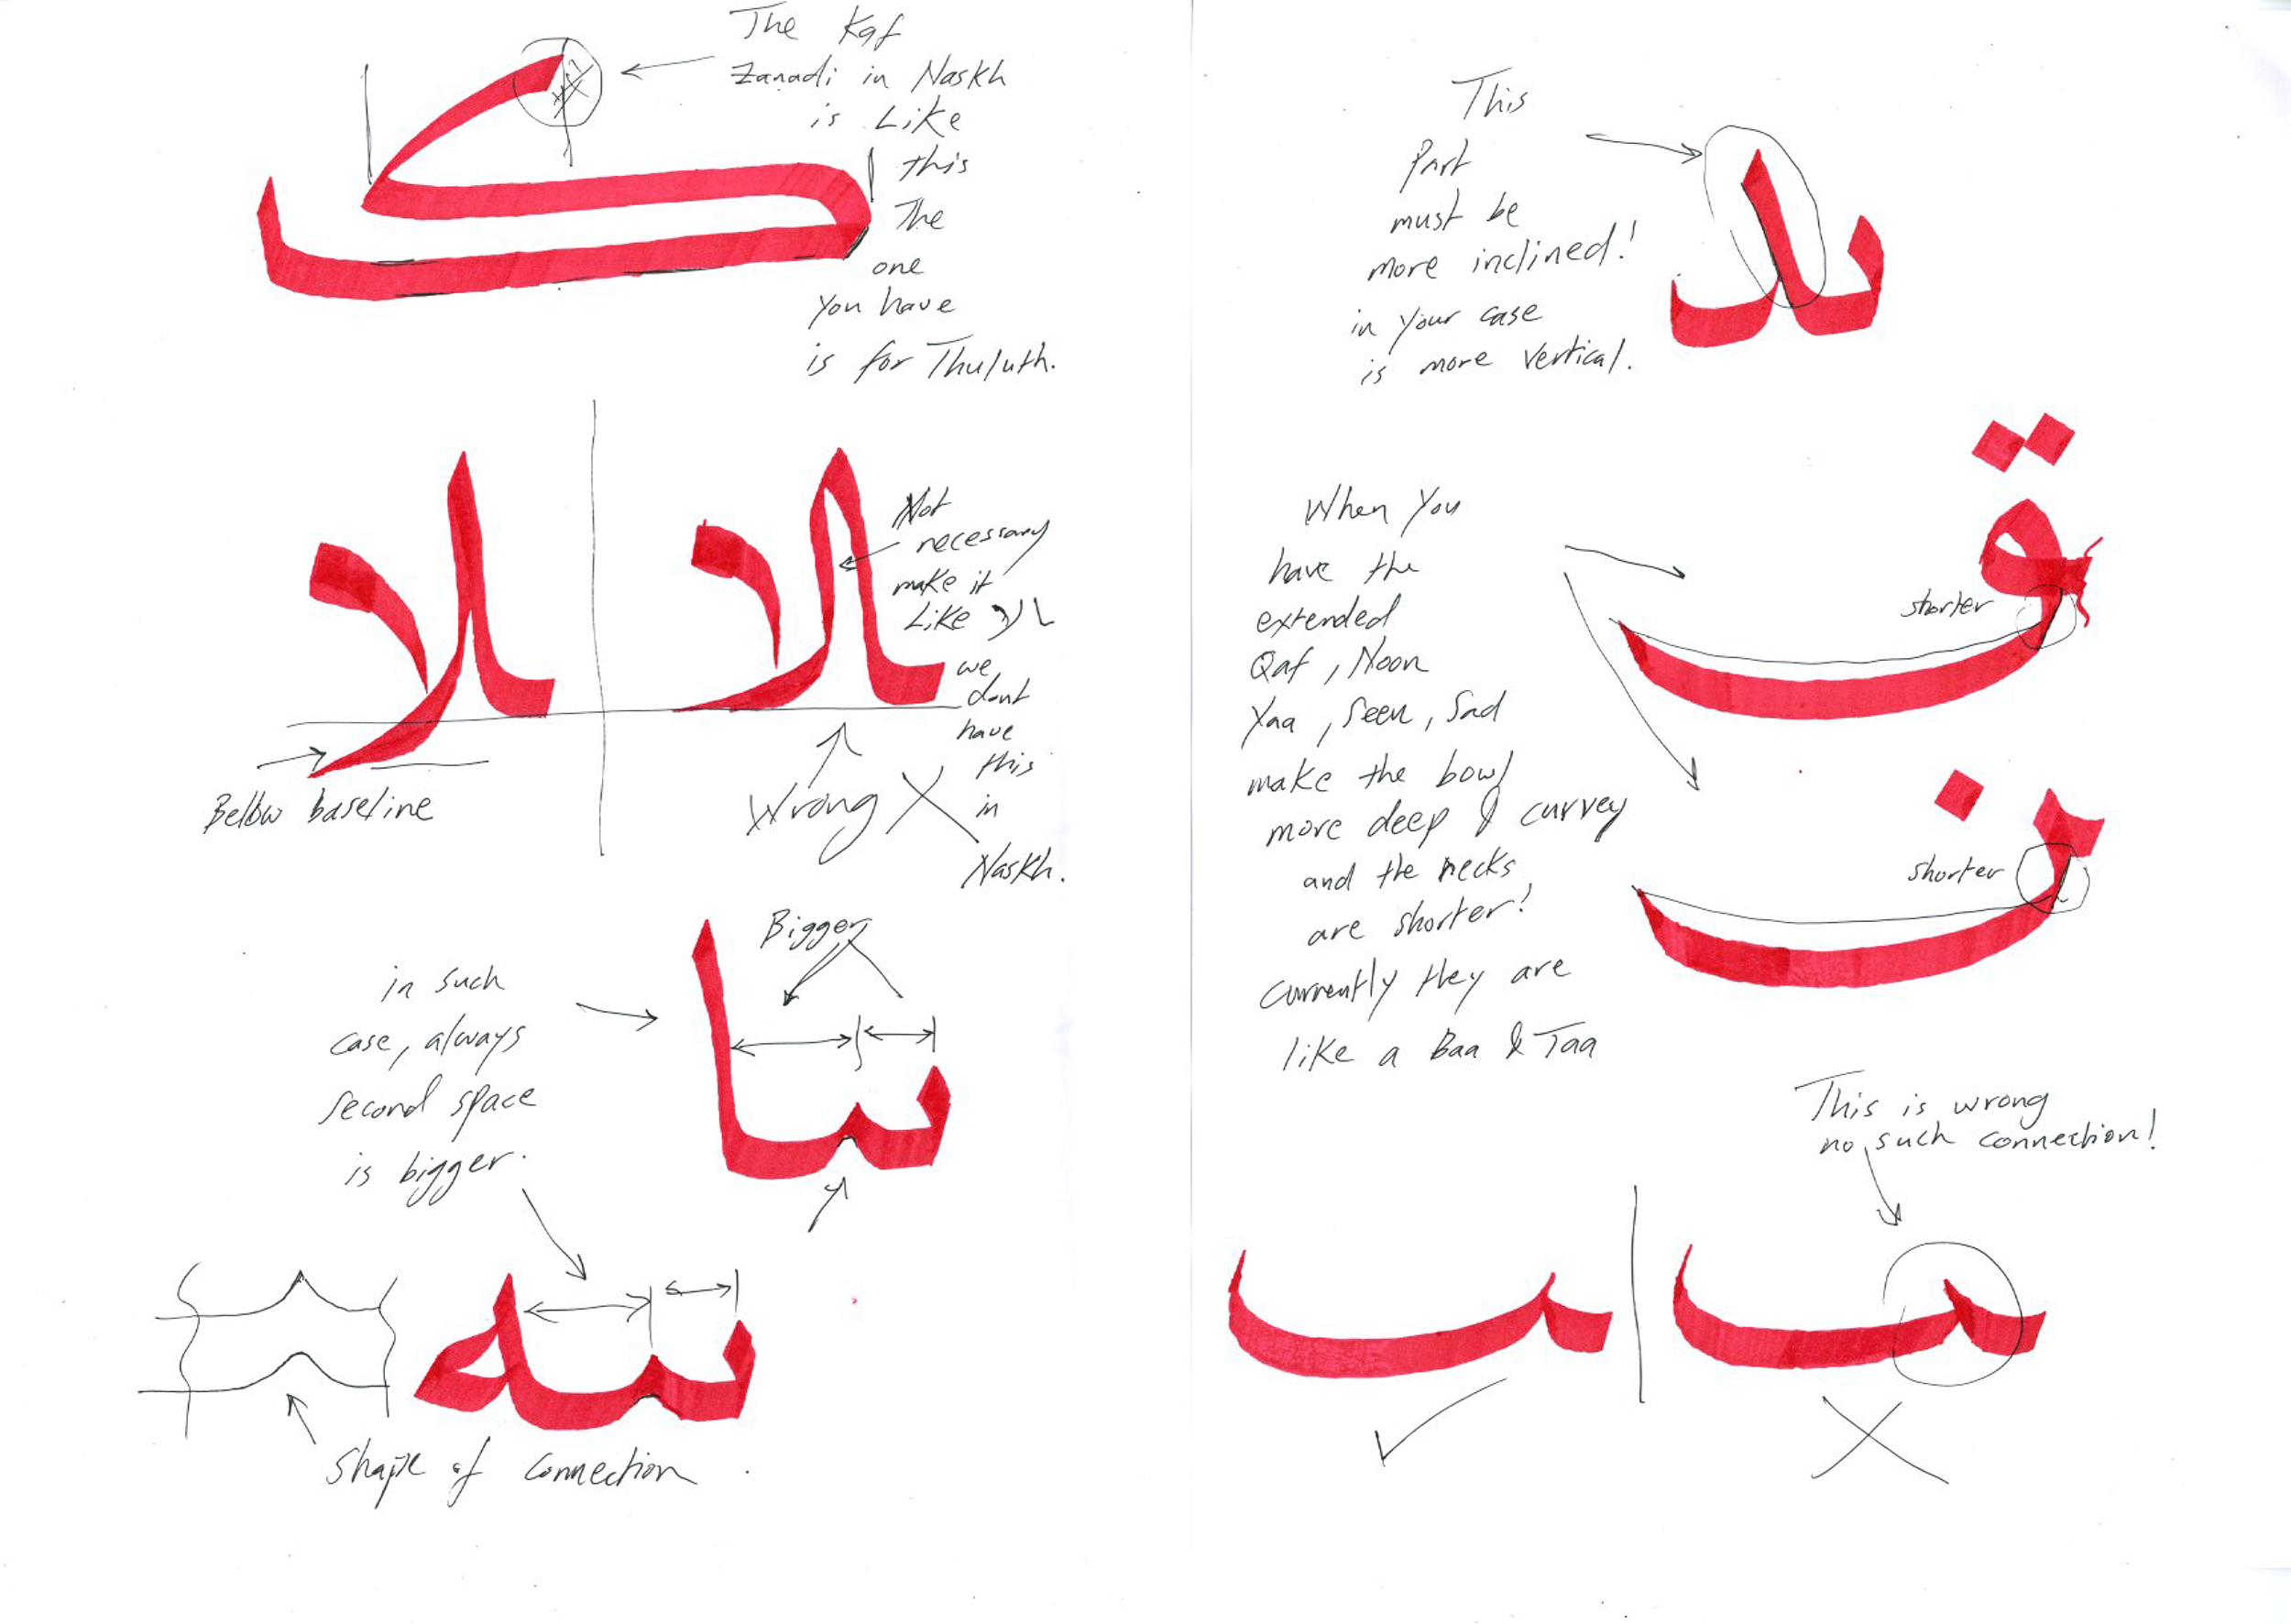 The Kaf
Zanadi in Naskh
is Like
this
The
one
You have
is for Thuluth.
ک
Not
necessary
make it
Like
we
dont
have
this
in
Naskh.
Bellow baseline
Wrong
Bigger
in such
case, always
second space
is bigger.
Shape of Connection
This
Part
must be
more inclined!
in your case
is more vertical.
When you
have the
extended
Qaf, Noon
Yaa, Seen, Sad
make the bowl
more deep & curvey
and the necks
are shorter!
currently they are
like a Baa & Taa
shorter
ق
shorter
ن
This is wrong
no such connection!